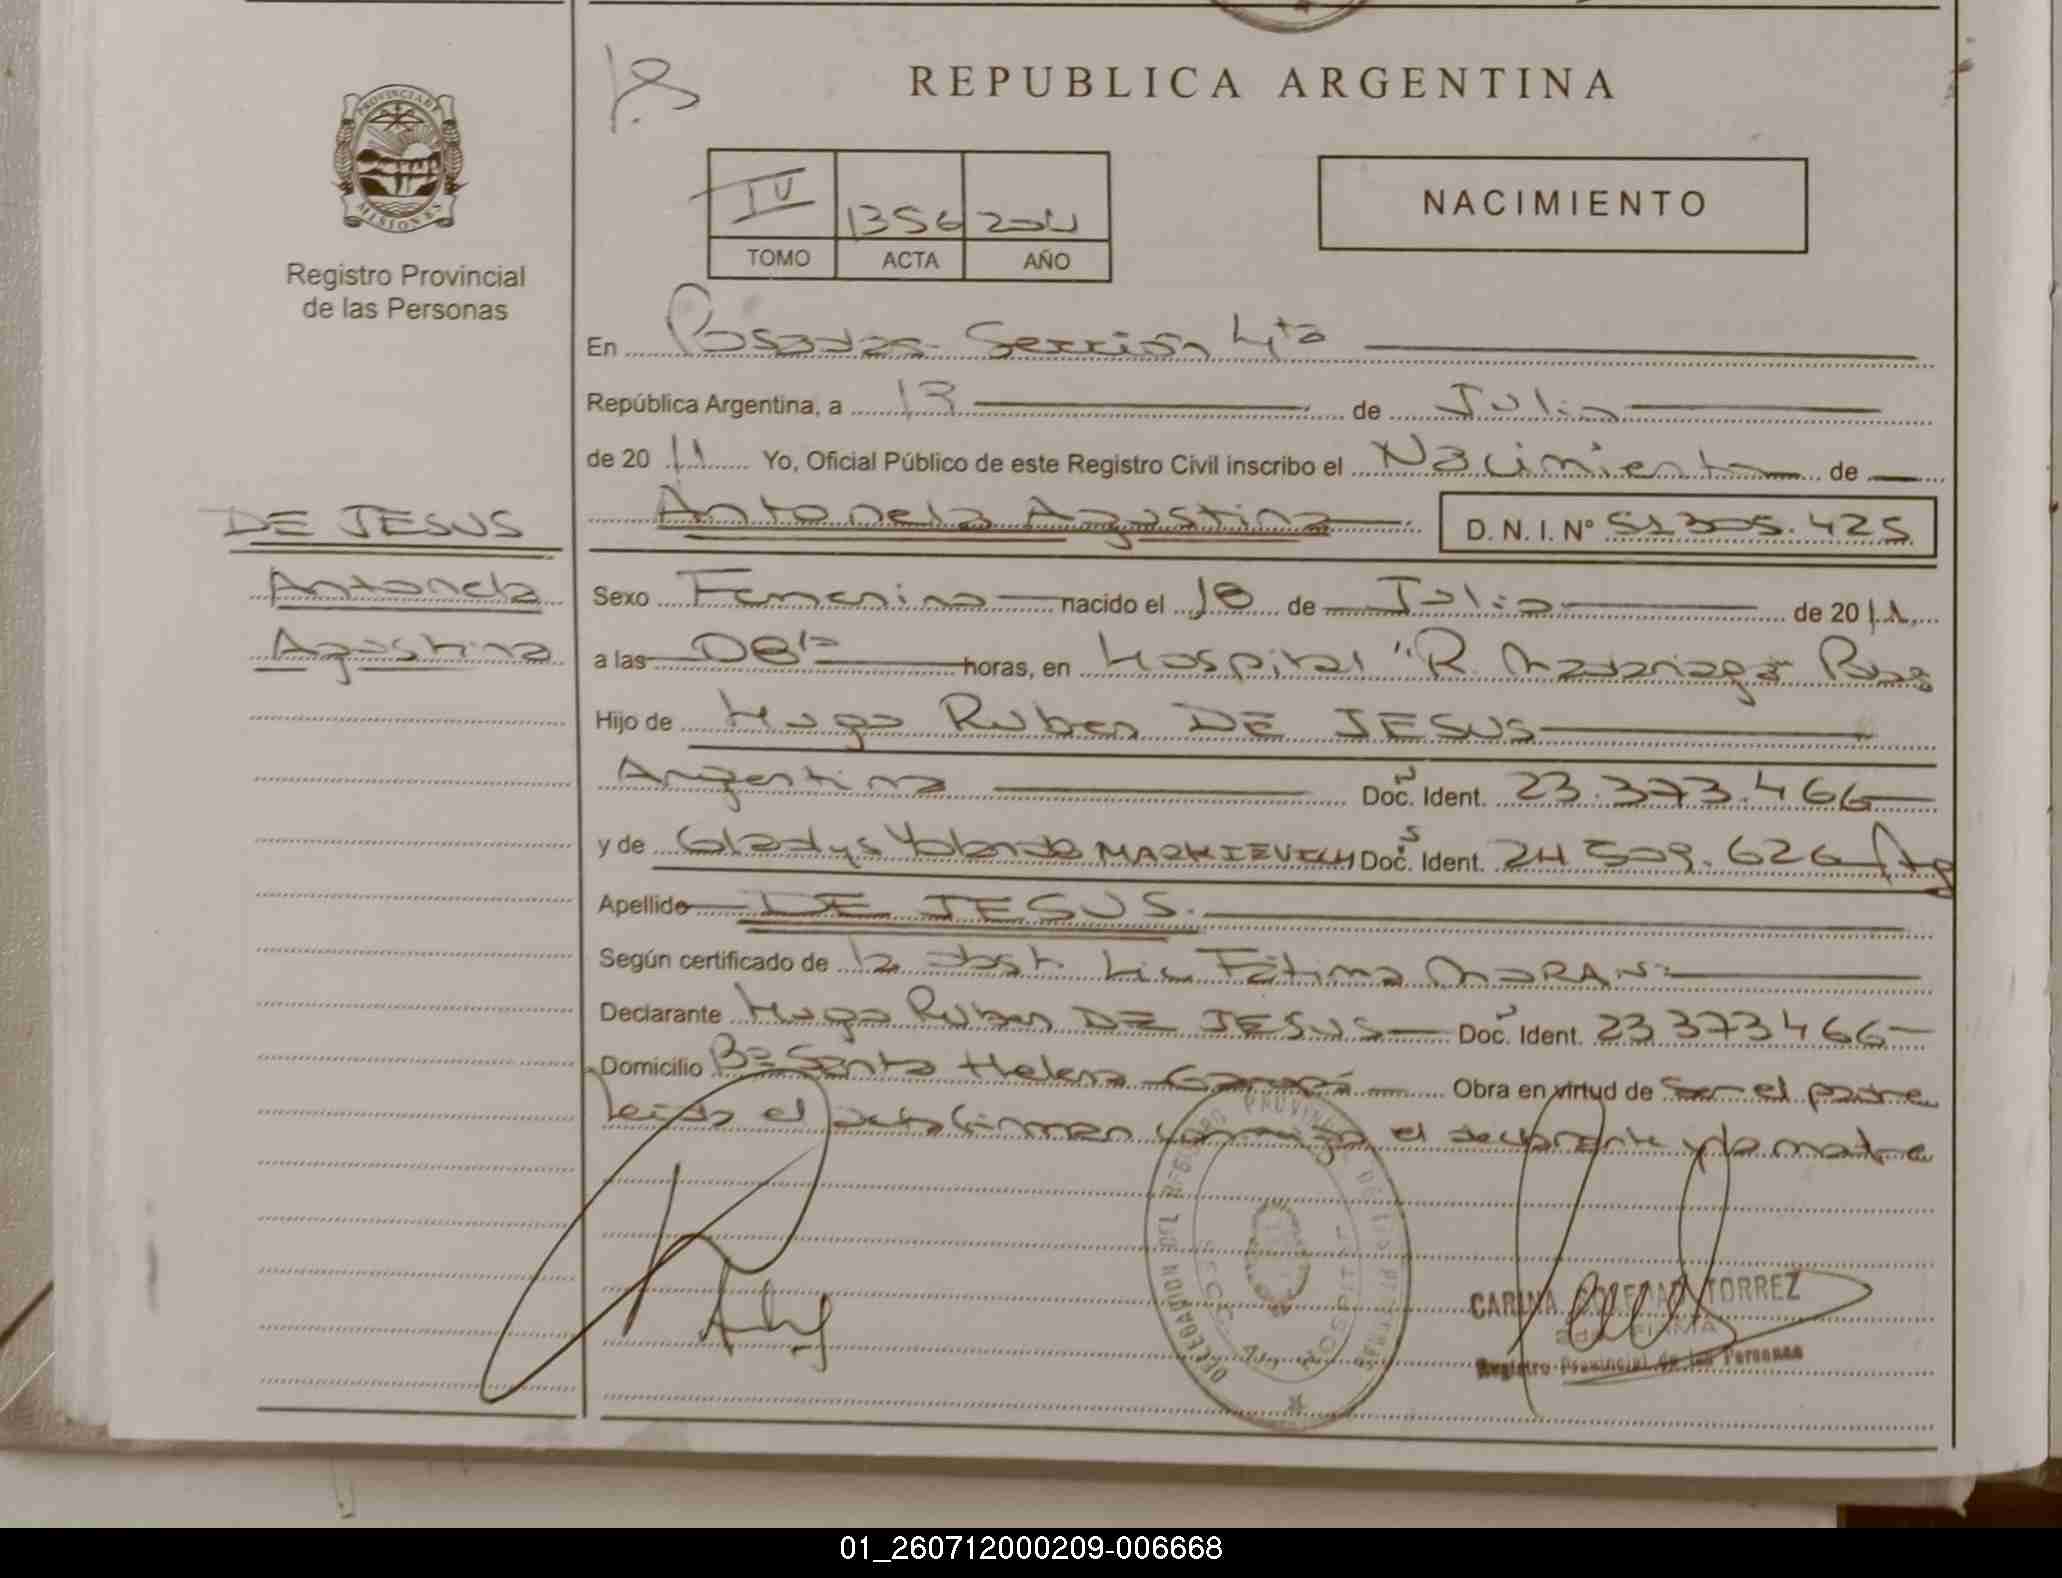 REPUBLICA ARGENTINA
PROVINCIA DE
MISIONES
Registro Provincial
de las Personas
IV 1356 2011
TOMO ACTA AÑO
NACIMIENTO
En Posadas Sección 4ta
República Argentina, a 13 de Julio
de 20 11 Yo, Oficial Público de este Registro Civil inscribo el Nacimiento de
Antonela Agostina D. N. I. Nº 51305.425
DE JESUS
Antonela
Agostina
Sexo Femenino nacido el 10 de Julio de 20 11
a las horas, en Hospital "R. Madariaga Pdas
Hijo de Hugo Ruben DE JESUS
Argentina Doc. Ident. 23.373.466
y de Gladys Yolanda Doc. Ident. 24 509.626 Arg
Apellido DE JESUS.
Según certificado de la obst. Lic Fátima MORAN
Declarante Hugo Ruben DE JESUS Doc. Ident. 23 373 466
Domicilio Bº Santa Helena Garupá Obra en virtud de Ser el padre
leida el acta firman conmigo el declarante y la madre
DELEGACION DEL REGISTRO PROVINCIAL DE LAS PERSONAS
HOSPITAL
CARINA TORREZ
FIRMA
Registro Provincial de las Personas
01_260712000209-006668